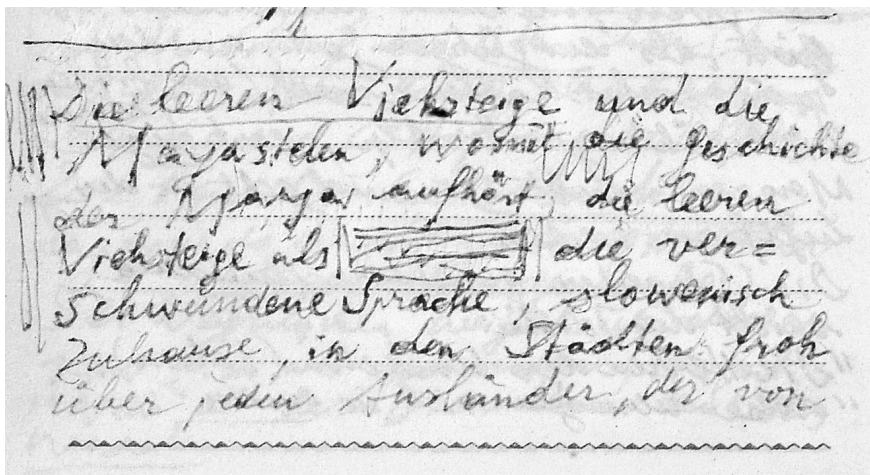 Die leeren Viehsteige und die
Mayastelen, womit die Geschichte
der Mayas aufhört, die leeren
Viehsteige als die ver=
schwundene Sprache, slowenisch
zuhause, in den Städten froh
über jeden Ausländer, der von